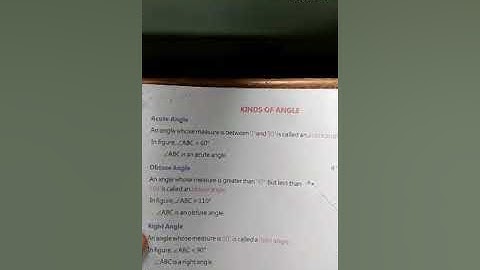 KINDS OF ANGLE
Acute Angle
An angle whose measure is between 0° and 90° is called an
In figure, ∠ABC = 60°
∠ABC is an acute angle.
Obtuse Angle
An angle whose measure is greater than 90° but less than
180° is called an obtuse angle.
In figure, ∠ABC = 110°
∠ABC is an obtuse angle.
Right Angle
An angle whose measure is 90° is called a right angle.
In figure, ∠ABC = 90°
∠ABC is a right angle.